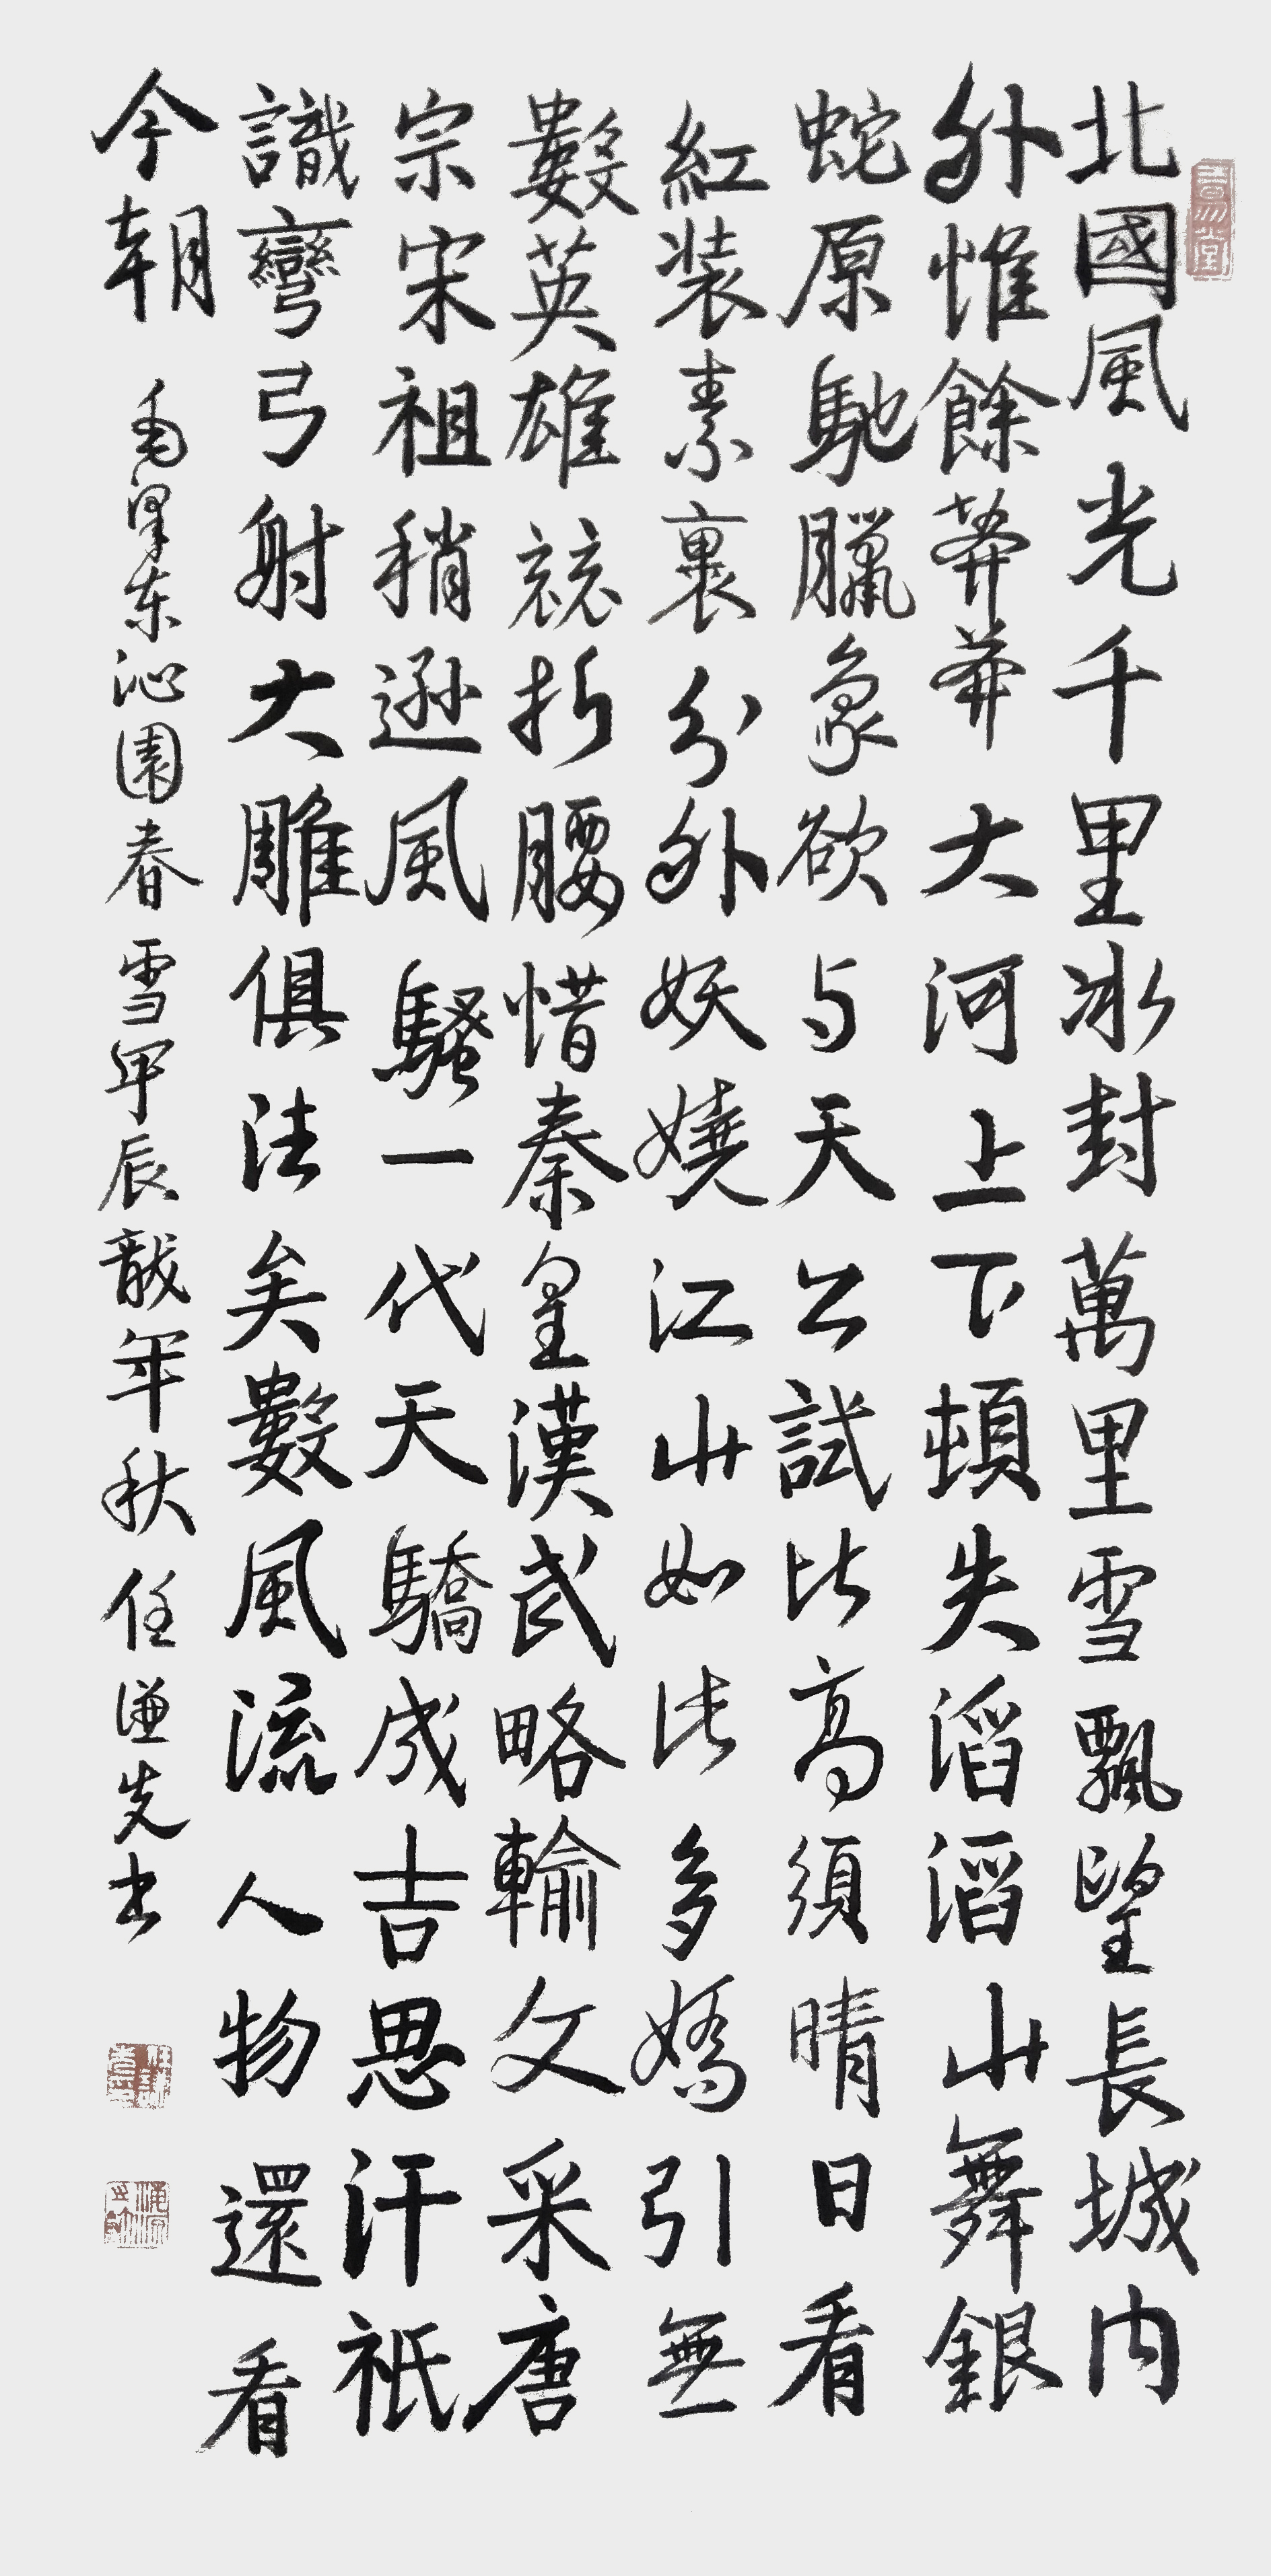 北國風光千里冰封萬里雪飄望長城內
外惟餘莽莽大河上下頓失滔滔山舞銀
蛇原馳臘象欲与天公試比高須晴日看
紅装素裹分外妖嬈江山如此多嬌引無
數英雄競折腰惜秦皇漢武略輸文采唐
宗宋祖稍遜風騷一代天驕成吉思汗祇
識彎弓射大雕俱往矣數風流人物還看
今朝 毛澤东沁園春雪甲辰龍年秋任谦先书